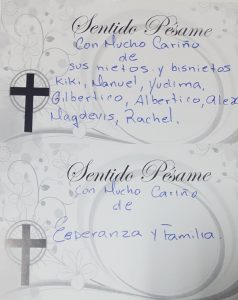 Sentido Pésame
Con Mucho Cariño
de
sus nietos y bisnietos
Kiki, Manuel, Yudima,
Gilbertico, Albertico, Alex
Magdevis, Rachel.
Sentido Pésame
Con Mucho Cariño
de
Esperanza y Familia.